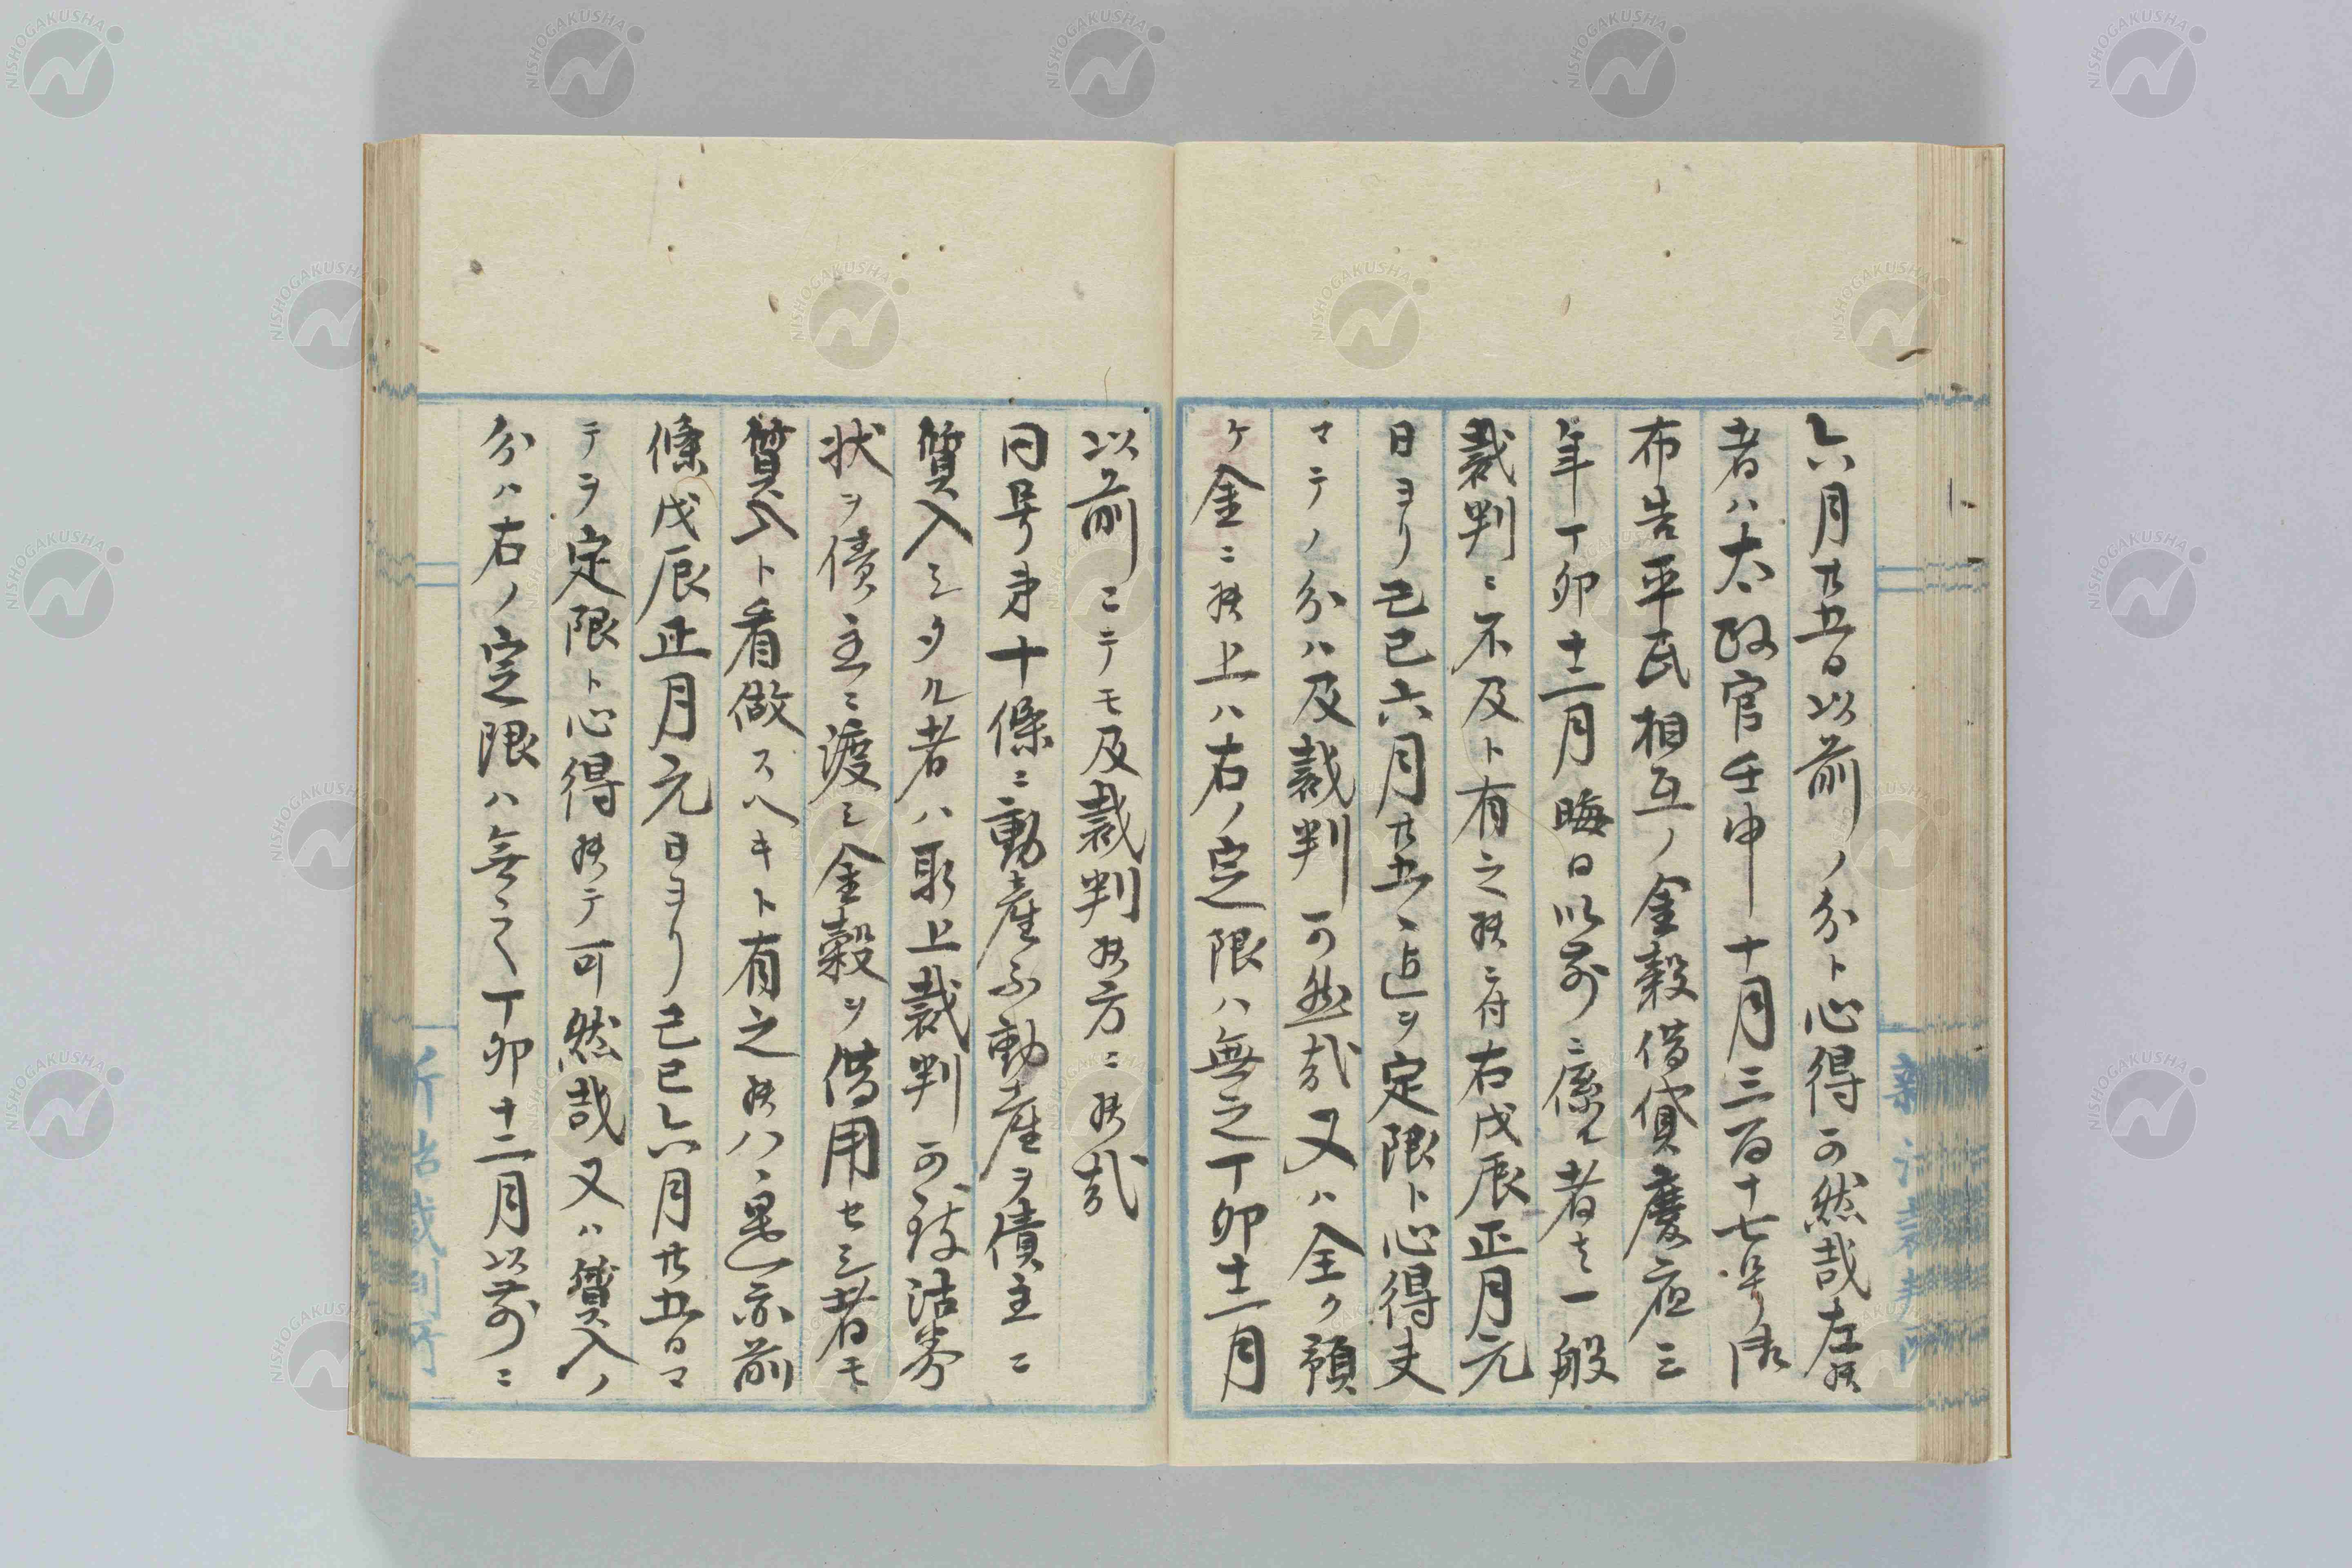 六月廿五日以前ノ分ト心得可然哉左候
者ハ太政官壬申十月三百十七号御
布告平民相互ノ金穀借貸慶応三
年丁卯十二月晦日以前ニ係ル者ハ一般
裁判ニ不及ト有之候ニ付右戊辰正月元
日ヨリ己巳六月廿五日迄ヲ定限ト心得夫
マテノ分ハ及裁判可然哉又ハ全ク預
ケ金ニ候上ハ右ノ定限ハ無之丁卯十二月
以前ニテモ及裁判候方ニ候哉
同号第十條ニ動産不動産ヲ債主ニ
質入シタル者ハ取上裁判可致沽券
状ヲ債主ニ渡シ金穀ヲ借用セシ者モ
質入ト看做スヘキト有之候ハヽ是亦前
條戊辰正月元日ヨリ己巳六月廿五日マ
テヲ定限ト心得候テ可然哉又ハ質入ノ
分ハ右ノ定限ハ無之丁卯十二月以前ニ
NISHOGAKUSHA